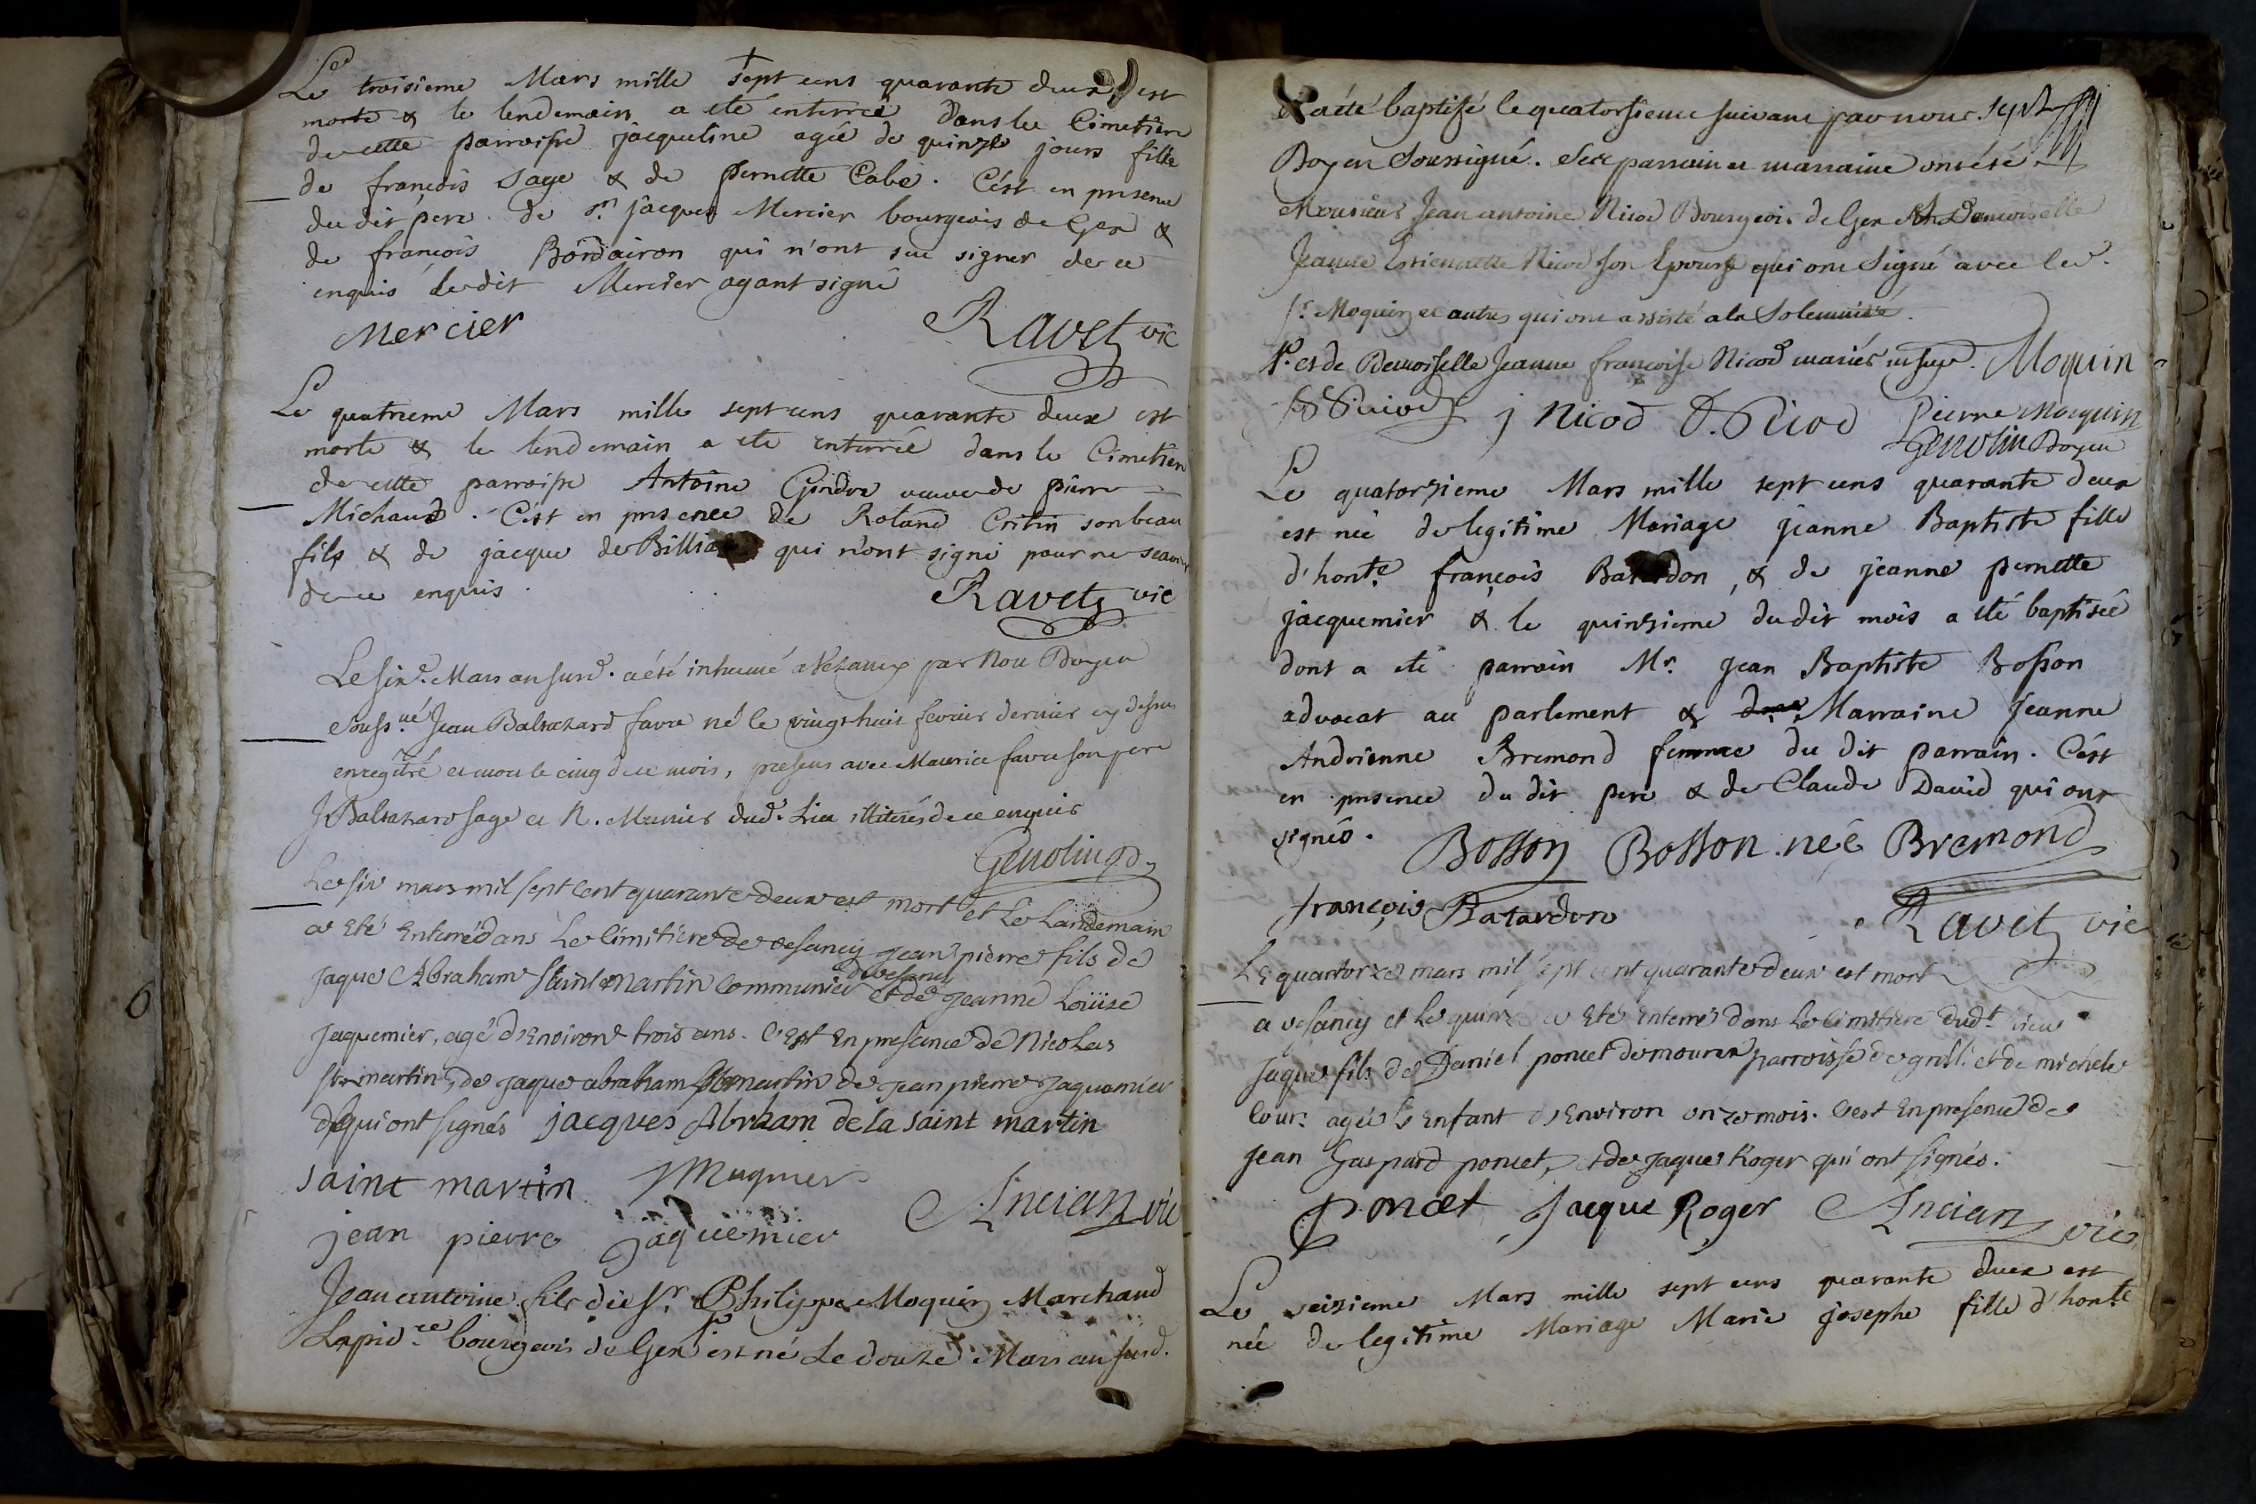 Le troisieme Mars mille sept cens quarante deux est
morte & le lendemain a eté enterrée dans le Cimetiere
de cette parroisse jacqueline agée de quinze jours fille
de françois Sage & de pernette Cabe. C'est en presence
du dit pere de sr. jacques Mercier bourgeois de Gex &
de françois Bordairon qui n'ont sû signer de ce
enquis ledit Mercier ayant signé
Mercier Ravet vic
Le quatrieme Mars mille sept cens quarante deux est
morte & le lendemain a eté enterrée dans le Cimetiere
de cette parroisse Antoine Gindre veuve de pierre
Michaud. C'est en presence de Roland Critin son beau
fils & de jacque de qui n'ont signé pour ne scavoir
de ce enquis. Ravet vic
Le six.e Mars an susd. a été inhumé a Vezancy par Nou Doyen
souss.né Jean Baltazard favre né le vingt huit fevrier dernier cy dessus
enregitré et mort le cinq de ce mois, presens avec Maurice favre son pere
J Baltazard sage et N. Munier dud. Lieu illiterés de ce enquis
Genolin D.
Le six mars mil sept Cent quarante deux est mort et Le Landemain
a Eté Enterré dans Le Cimitiere de vesancy jean pierre fils de
jaque Abraham Saint Martin Communier de vesancy et de jeanne Loüise
jaquemier, agé d'Environ trois ans. C'Est En presance de Nicolas
st martin, de jaque abraham st martin de jean pierre jaquemier
qui ont signés jacques Abraham de la saint martin
saint martin jMugnier
jean pierre jaquemier Ancian vic
Jean antoine fils du Sr. Philippe Moquin Marchand
Lapid.re bourgeois de Gex est né Le douze Mars an susd.
et a été baptisé le quatorsieme suivant par nous
Doyen Soussigné. Ses parrain et marraine ont été
Monsieur Jean antoine Nicod Bourgeois de Gex et Demoiselle
Jeanne Estiennette Nicod son Epouse qui ont Signé avec led.
Sr. Moquin et autres qui ont assisté a la Solemnité.
et de Demoiselle Jeanne françoise Nicod mariés Moquin
j Nicod Pierre Moquin
Genolin Doyen
Le quatorzieme Mars mille sept cens quarante deux
est née de legitime Mariage jeanne Baptiste fille
d'hont.e françois Batardon, & de jeanne pernette
jacquemier & le quinzieme du dit mois a eté baptisée
dont a eté parrain Mr. jean Baptiste Bosson
advocat au parlement & Marraine Jeanne
Andrienne Bremond femme du dit parrain. C'est
en presence du dit pere & de Claude David qui ont
signés. Bosson Bosson née Bremond
françois Batardon Ravet vic
Le quartorze mars mil sept cent quarante deux est mort
a vesancy et Le quinze a Eté enterré dans Le Cimitiere dudt. lieu
jaque fils de Daniel poncet demourex parroisse de grilli et de michele
agé L'Enfant d'Environ onze mois. C'est En presence de
jean Gaspard poncet, et de jaque Roger qui ont signés.
Poncet Jacque Roger Ancian vic
Le seizieme Mars mille sept cens quarante deux est
née de legitime Mariage Marie josephe fille d'hont.e